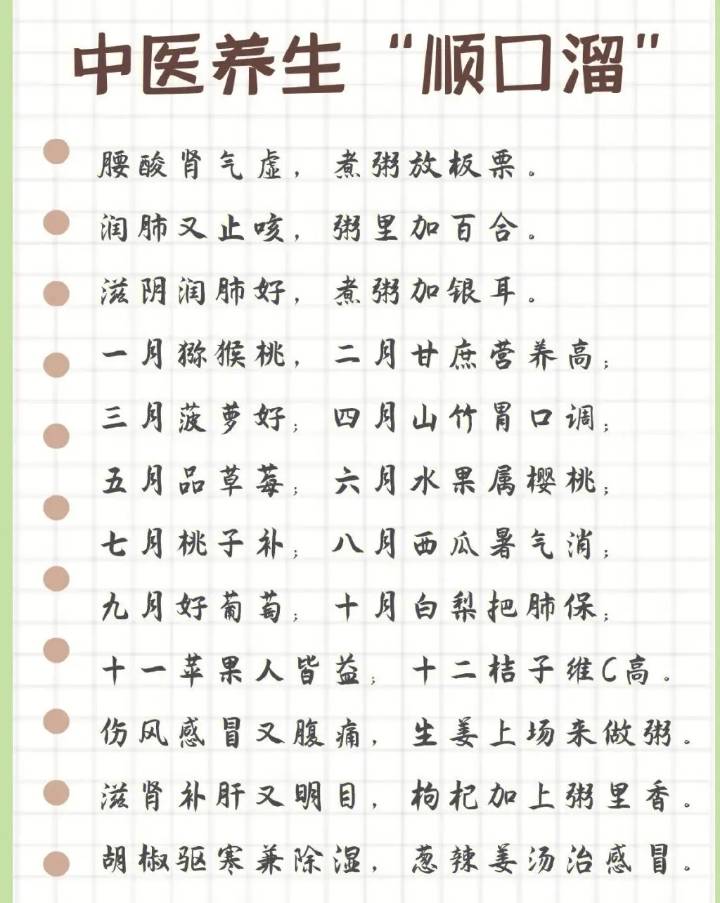 中医养生“顺口溜”
腰酸肾气虚，煮粥放板栗。
润肺又止咳，粥里加百合。
滋阴润肺好，煮粥加银耳。
一月猕猴桃，二月甘庶营养高；
三月菠萝好；四月山竹胃口调；
五月品草莓；六月水果属樱桃；
七月桃子补；八月西瓜暑气消；
九月好葡萄；十月白梨把肺保；
十一苹果人皆益；十二桔子维C高。
伤风感冒又腹痛，生姜上场来做粥。
滋肾补肝又明目，枸杞加上粥里香。
胡椒驱寒兼除湿，葱辣姜汤治感冒。